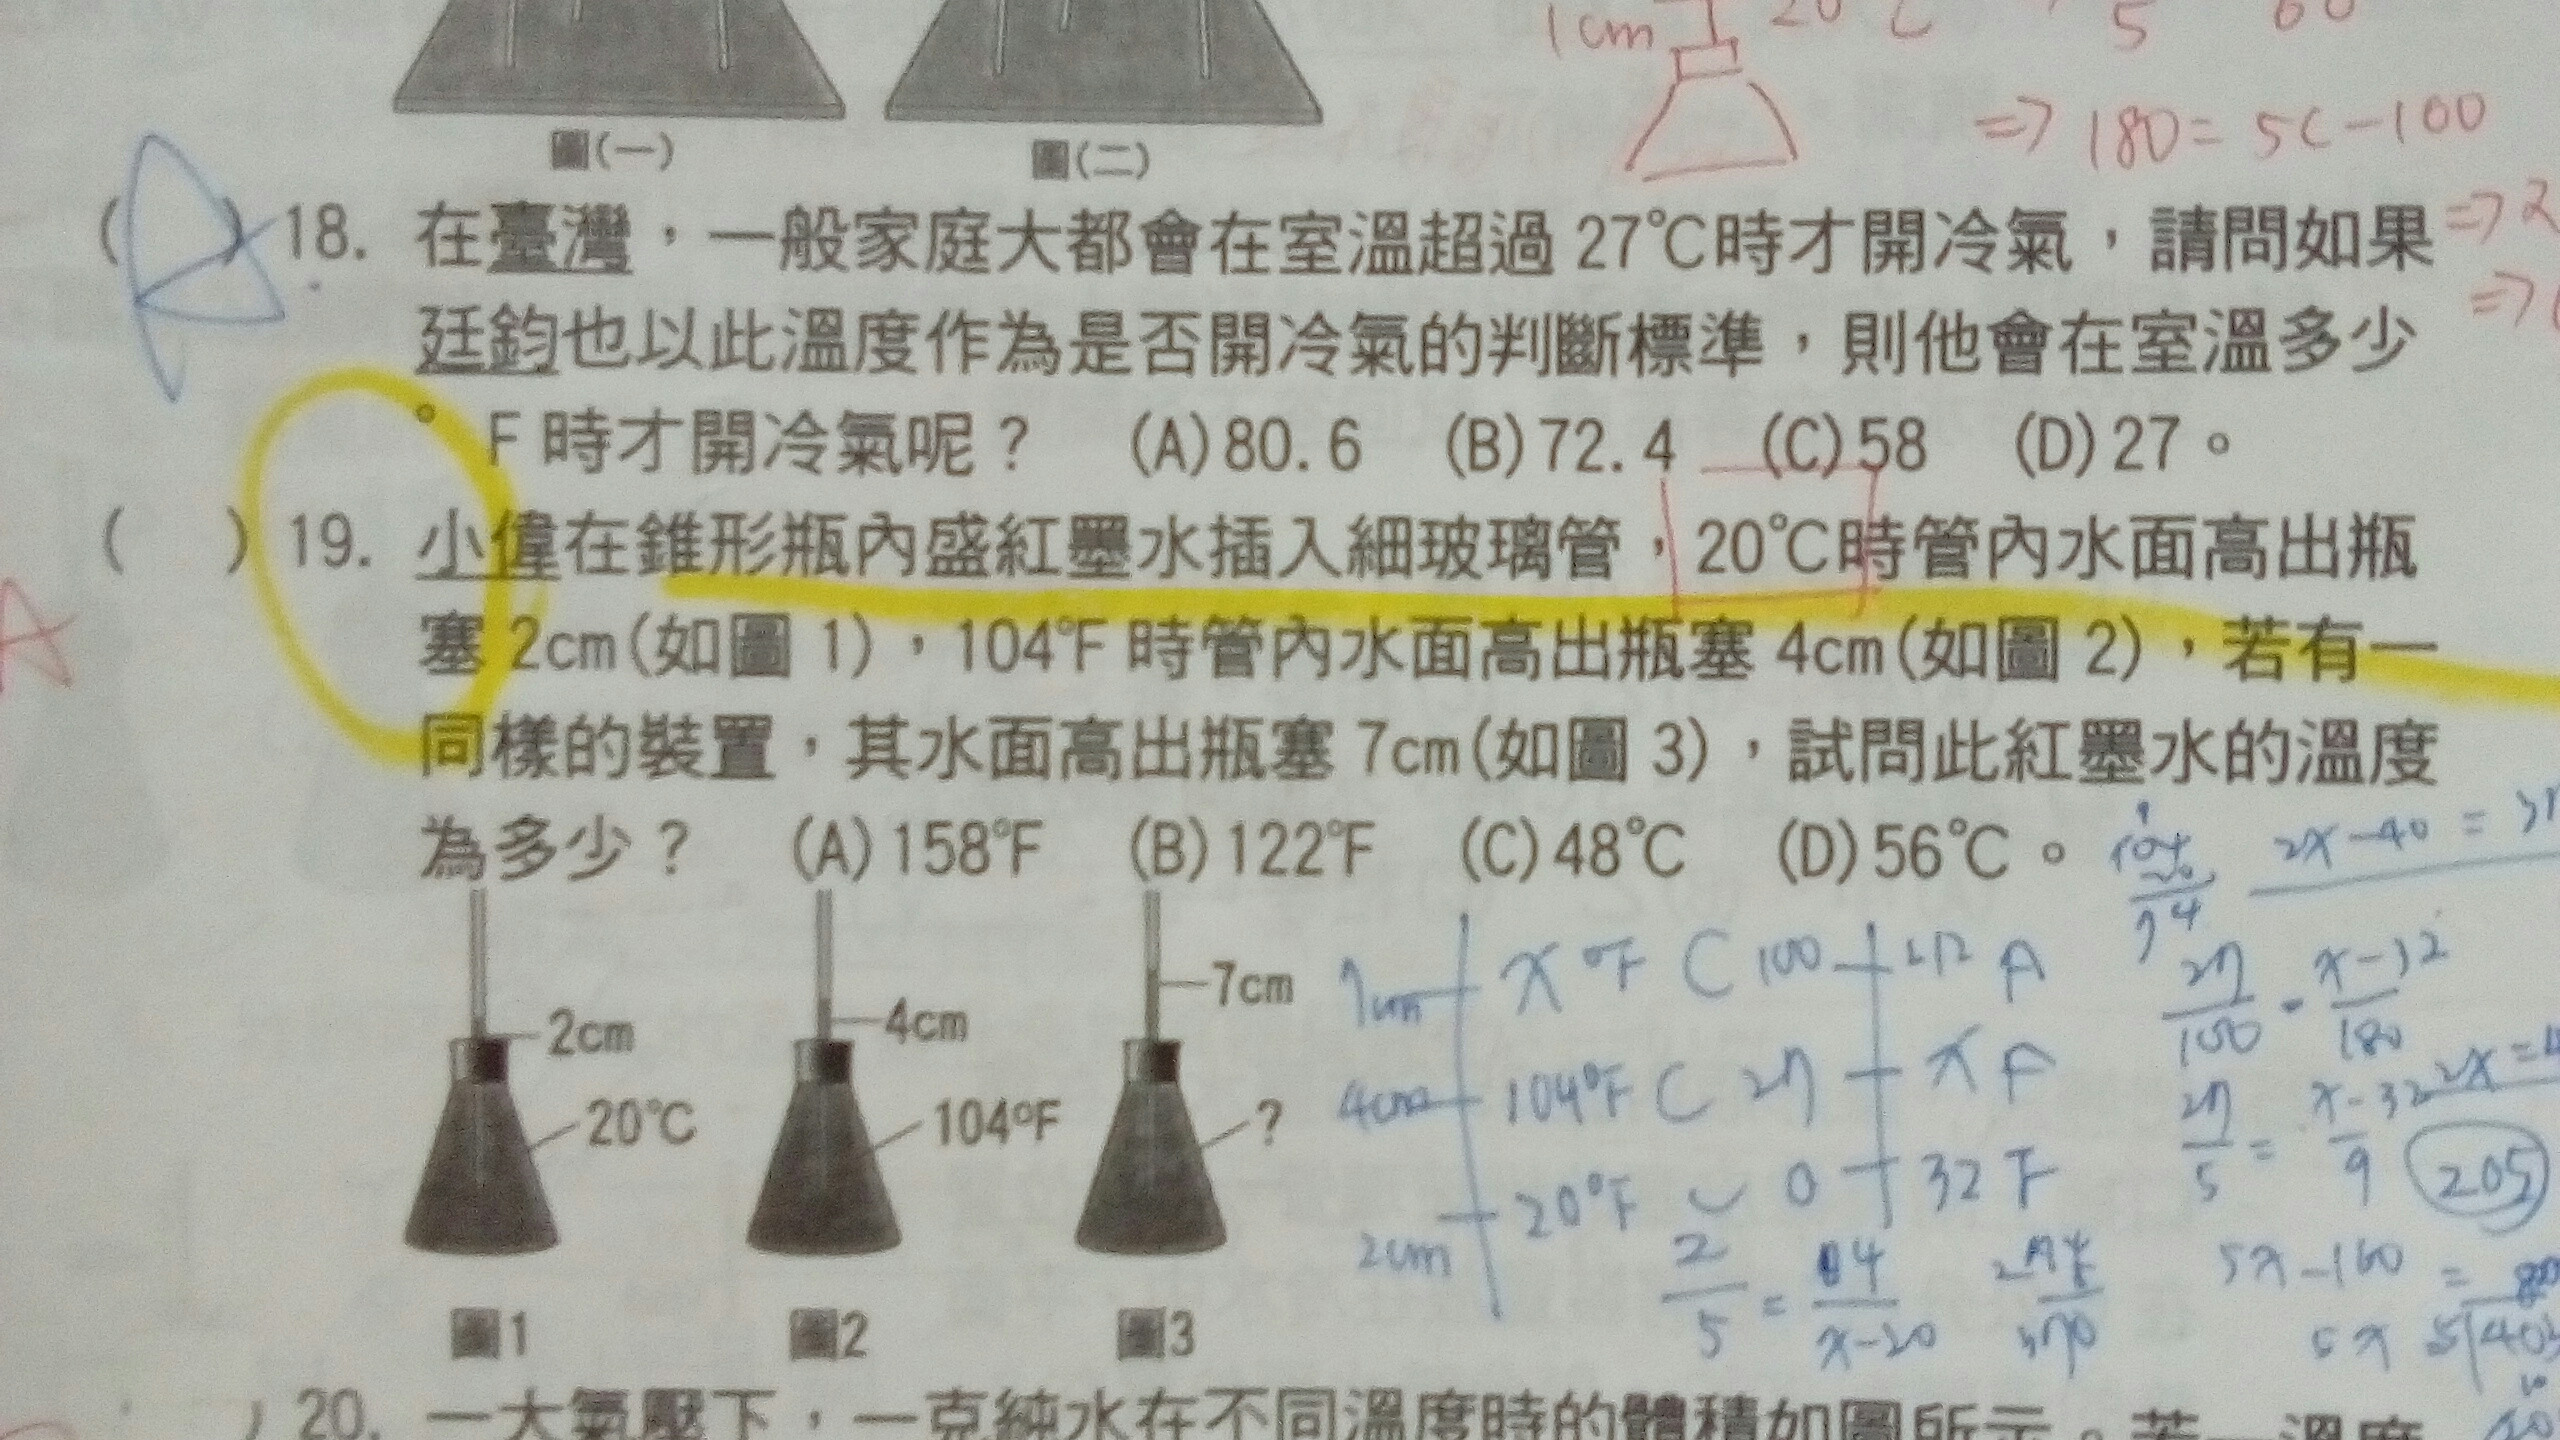 1cm 20°C 5 60
圖(一) 圖(二)
⇒ 180 = 5C - 100
( ) 18. 在臺灣，一般家庭大都會在室溫超過 27℃時才開冷氣，請問如果
廷鈞也以此溫度作為是否開冷氣的判斷標準，則他會在室溫多少
°F 時才開冷氣呢？ (A)80.6 (B)72.4 (C)58 (D)27。
( ) 19. 小偉在錐形瓶內盛紅墨水插入細玻璃管，20℃時管內水面高出瓶
A
塞 2cm(如圖 1)，104℉ 時管內水面高出瓶塞 4cm(如圖 2)，若有一
同樣的裝置，其水面高出瓶塞 7cm(如圖 3)，試問此紅墨水的溫度
為多少？ (A)158℉ (B)122℉ (C)48℃ (D)56℃。
2x-40 =
7cm x °F C 100 212 F
4cm 104°F C 27 x F
2cm 20°F C 0 32 F
27/100 = x-32/180
27/5 = x-32/9
2x=
205
2/5 = 84/x-20
5x-160 =
5x
2cm 4cm 7cm
20℃ 104℉ ?
圖1 圖2 圖3
) 20. 一大氣壓下，一克純水在不同溫度時的體積如圖所示。若一溫度